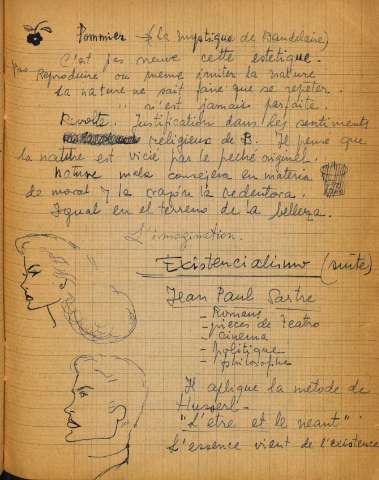 Pommier → (La mystique de Baudelaire)
C'est pas neuve cette estetique.
pas Reproduire ou même imiter la nature
La nature ne sait faire que se répéter.
" " n'est jamais parfaite.
Revolte. Justification dans les sentiments
religieux de B. Il pense que
la nature est vicié par le péché originel.
Nature mala consejera en materia
de moral y la razón la redentora.
Igual en el terreno de la belleza.
L'imagination.
Existencialismo (suite)
Jean Paul Sartre
- Romans
- pièces de Teatro
- Cinema
- politique
- philosophe
Il aplique la metode de
Husserl.
"L'etre et le neant"
L'essence vient de l'existence